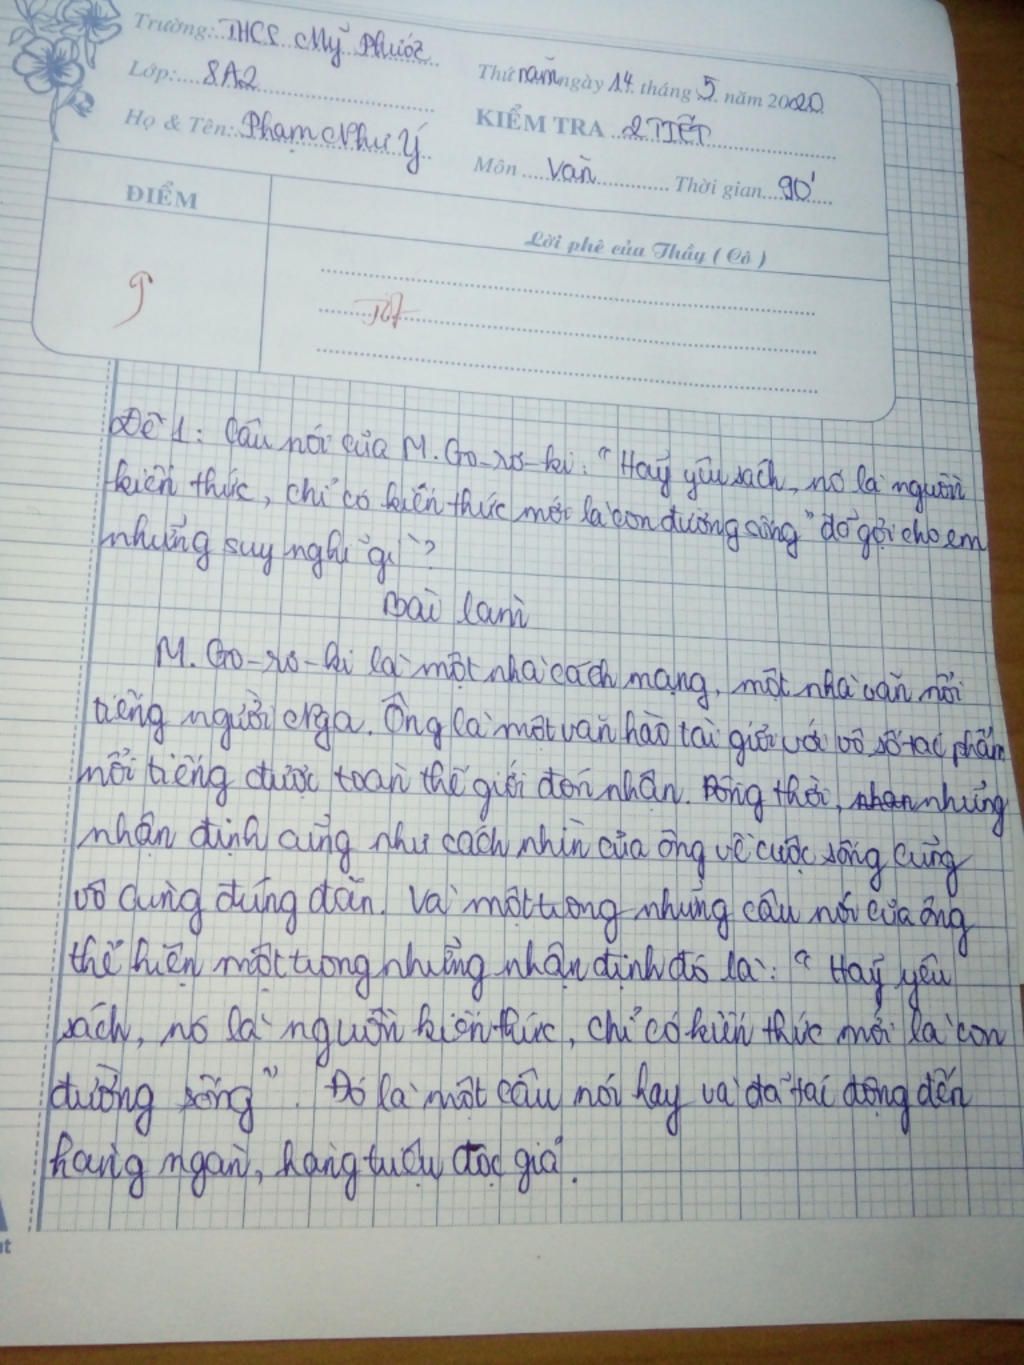 Trường: THCS Mỹ Phước
Lớp: 8A2
Họ & Tên: Phạm Như Ý
Thứ năm ngày 14 tháng 5 năm 2020
KIỂM TRA 2 TIẾT
Môn Văn Thời gian 90'
ĐIỂM
Lời phê của Thầy ( Cô )
9
Tốt
Đề 1: Câu nói của M. Go-rơ-ki: "Hãy yêu sách, nó là nguồn
kiến thức, chỉ có kiến thức mới là con đường sống" đã gợi cho em
những suy nghĩ gì?
Bài làm
M. Go-rơ-ki là một nhà cách mạng, một nhà văn nổi
tiếng người Nga. Ông là một văn hào tài giỏi với vô số tác phẩm
nổi tiếng được toàn thế giới đón nhận. Đồng thời, những
nhận định cũng như cách nhìn của ông về cuộc sống cũng
vô cùng đúng đắn. Và một trong những câu nói của ông
thể hiện một trong những nhận định đó là: "Hãy yêu
sách, nó là nguồn kiến thức, chỉ có kiến thức mới là con
đường sống". Đó là một câu nói hay và đã tác động đến
hàng ngàn, hàng triệu độc giả.